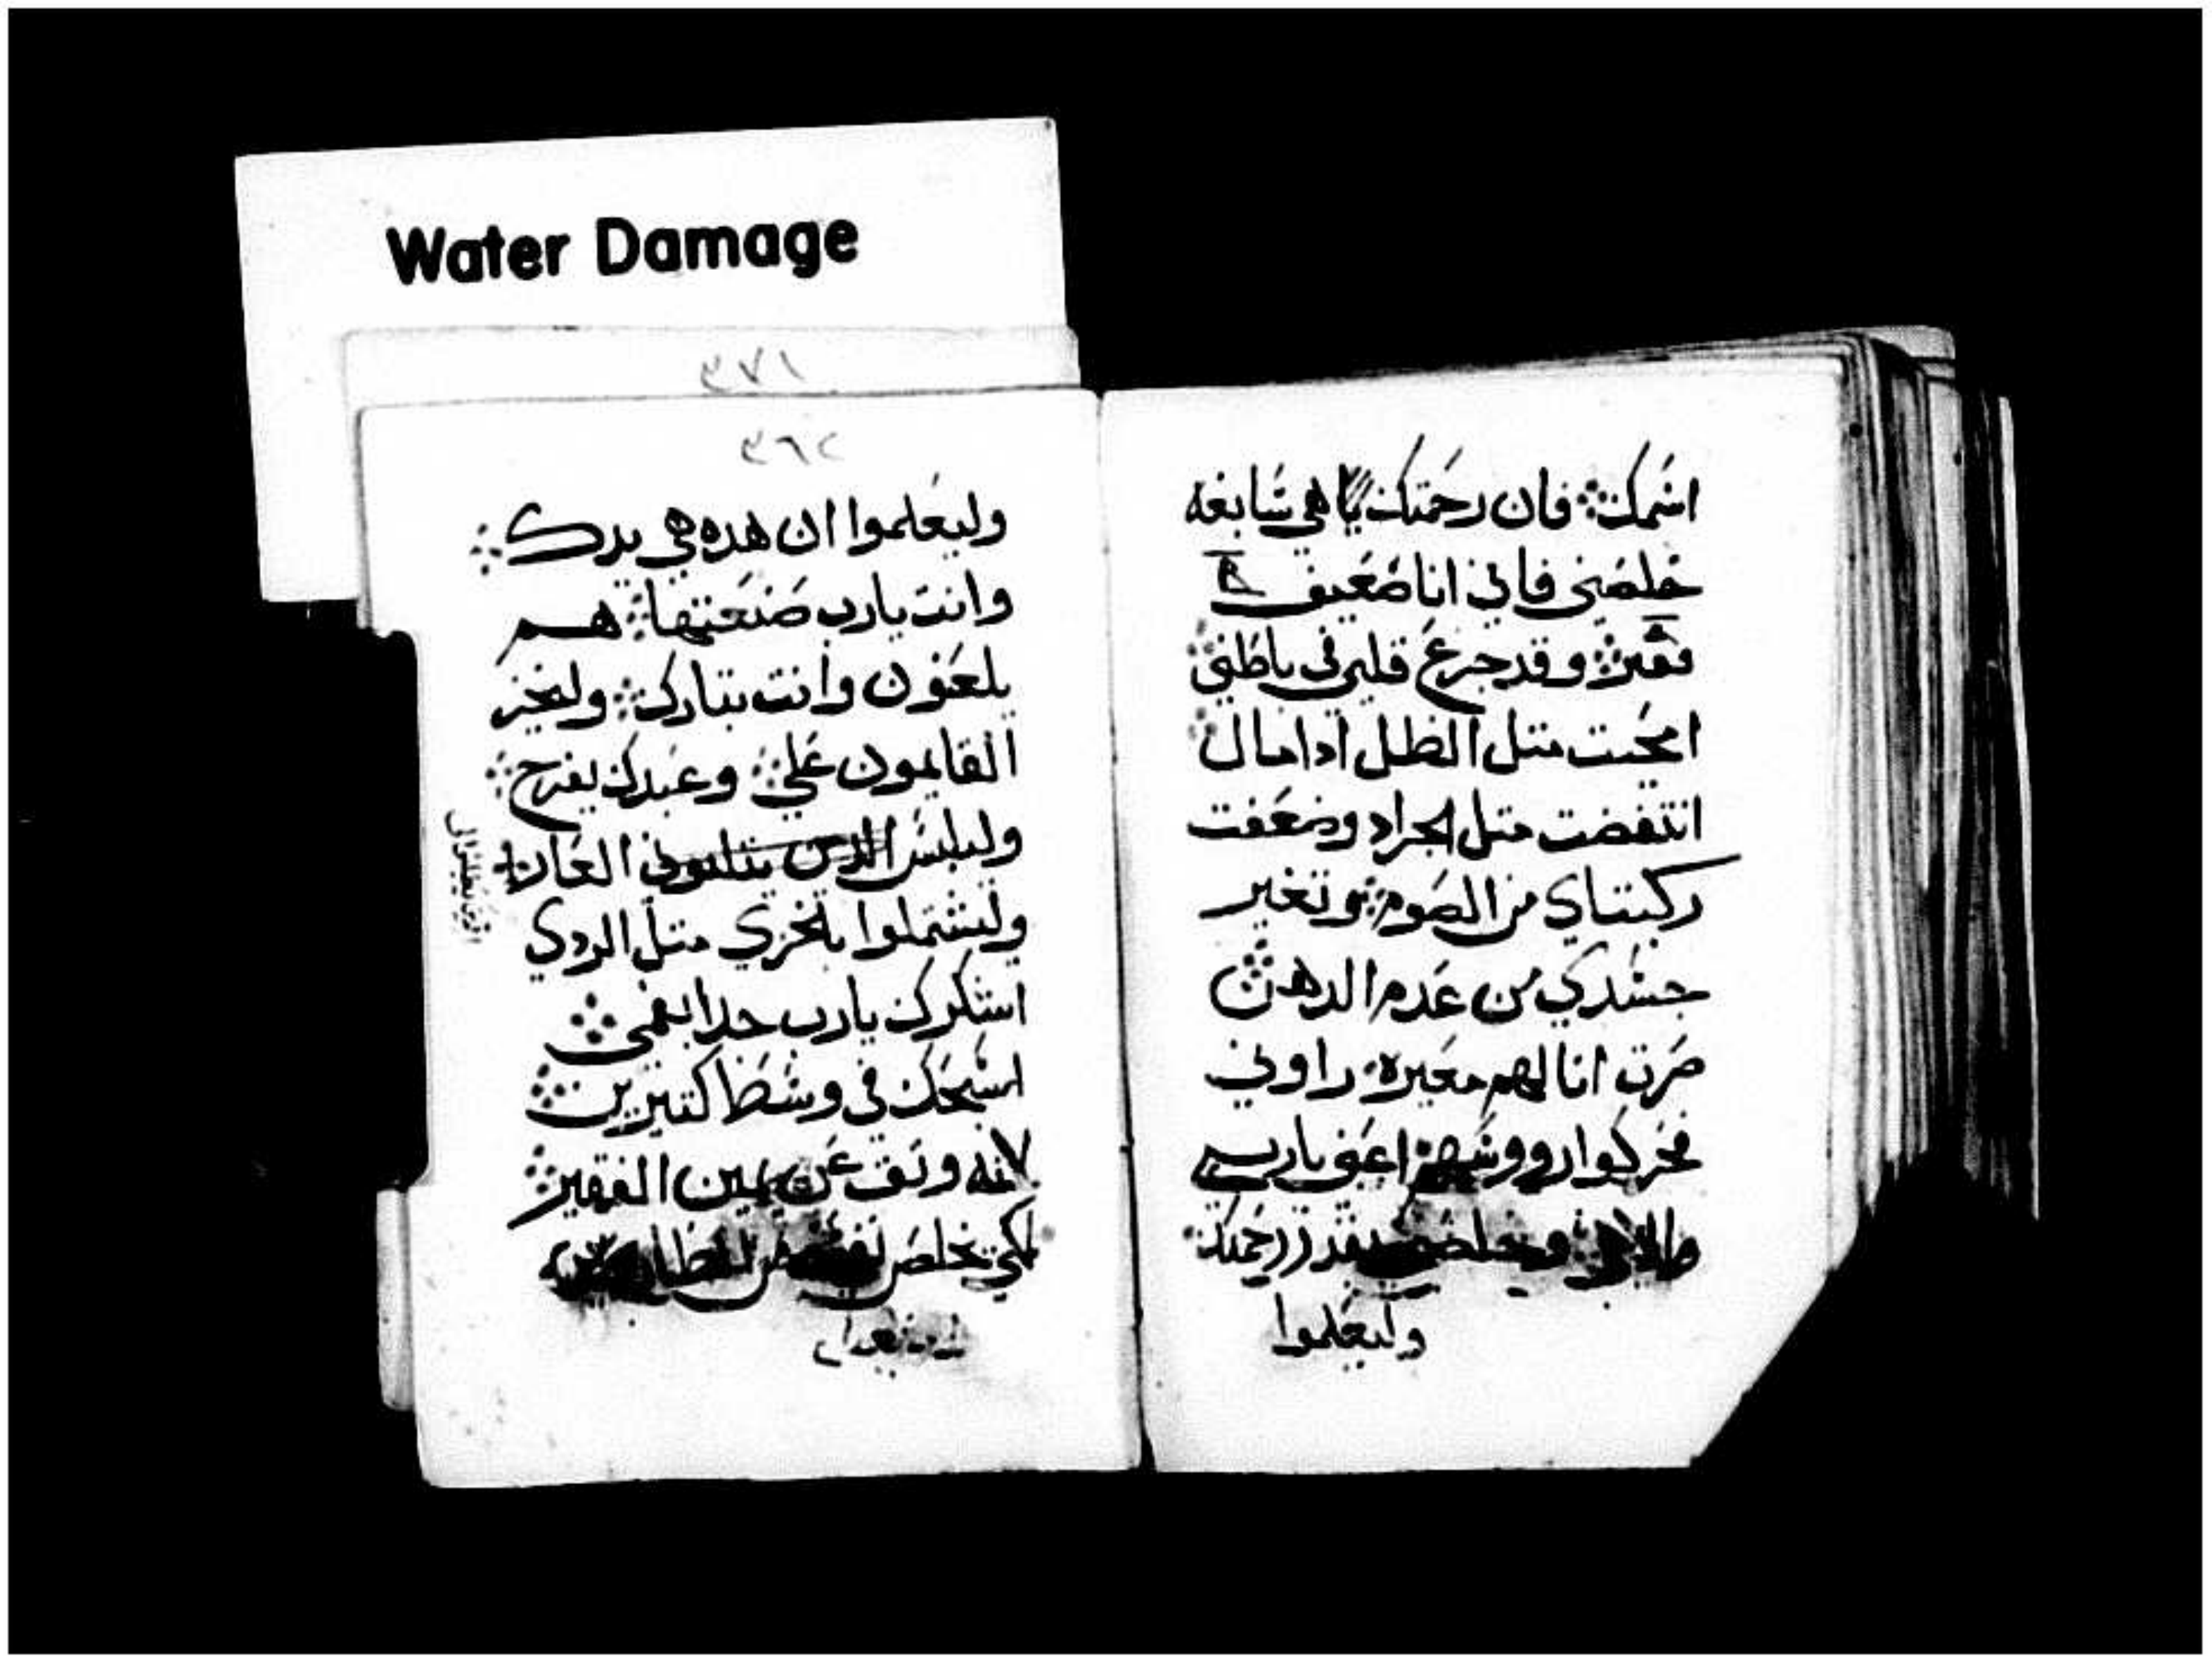 Water Damage
٣٧١
اسمك فان رحمتك هي سابغه
خلصني فاني انا ضعيف
فقير وقد جزع قلبي في باطني
امحيت متل الظل ادا مال
انتفضت متل الجراد وضعفت
ركبتاي من الصوم وتغير
جسدي من عدم الدهن
صرت انا لهم معيره راوني
فحركوا رووسهم اعني يارب
وخلصني رحمتك
وليعلموا
٣٦٢
وليعلموا ان هده هي يدك
وانت يارب صنعتها هم
يلعنون وانت تبارك وليخز
القايمون علي وعبدك يفرح
وليلبس الدين العار
وليشتملوا بالخزي متل الردي
اشكرك يارب جدا بفمي
اسبحك في وسط كتيرين
لانه وقف عن يمين الفقير
لكي يخلص